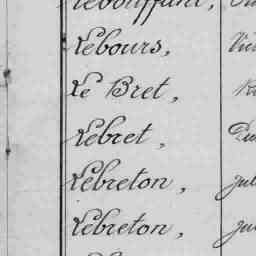 Lebouffant,
Lebours,
Le Bret,
Lebret,
Lebreton,
Lebreton,